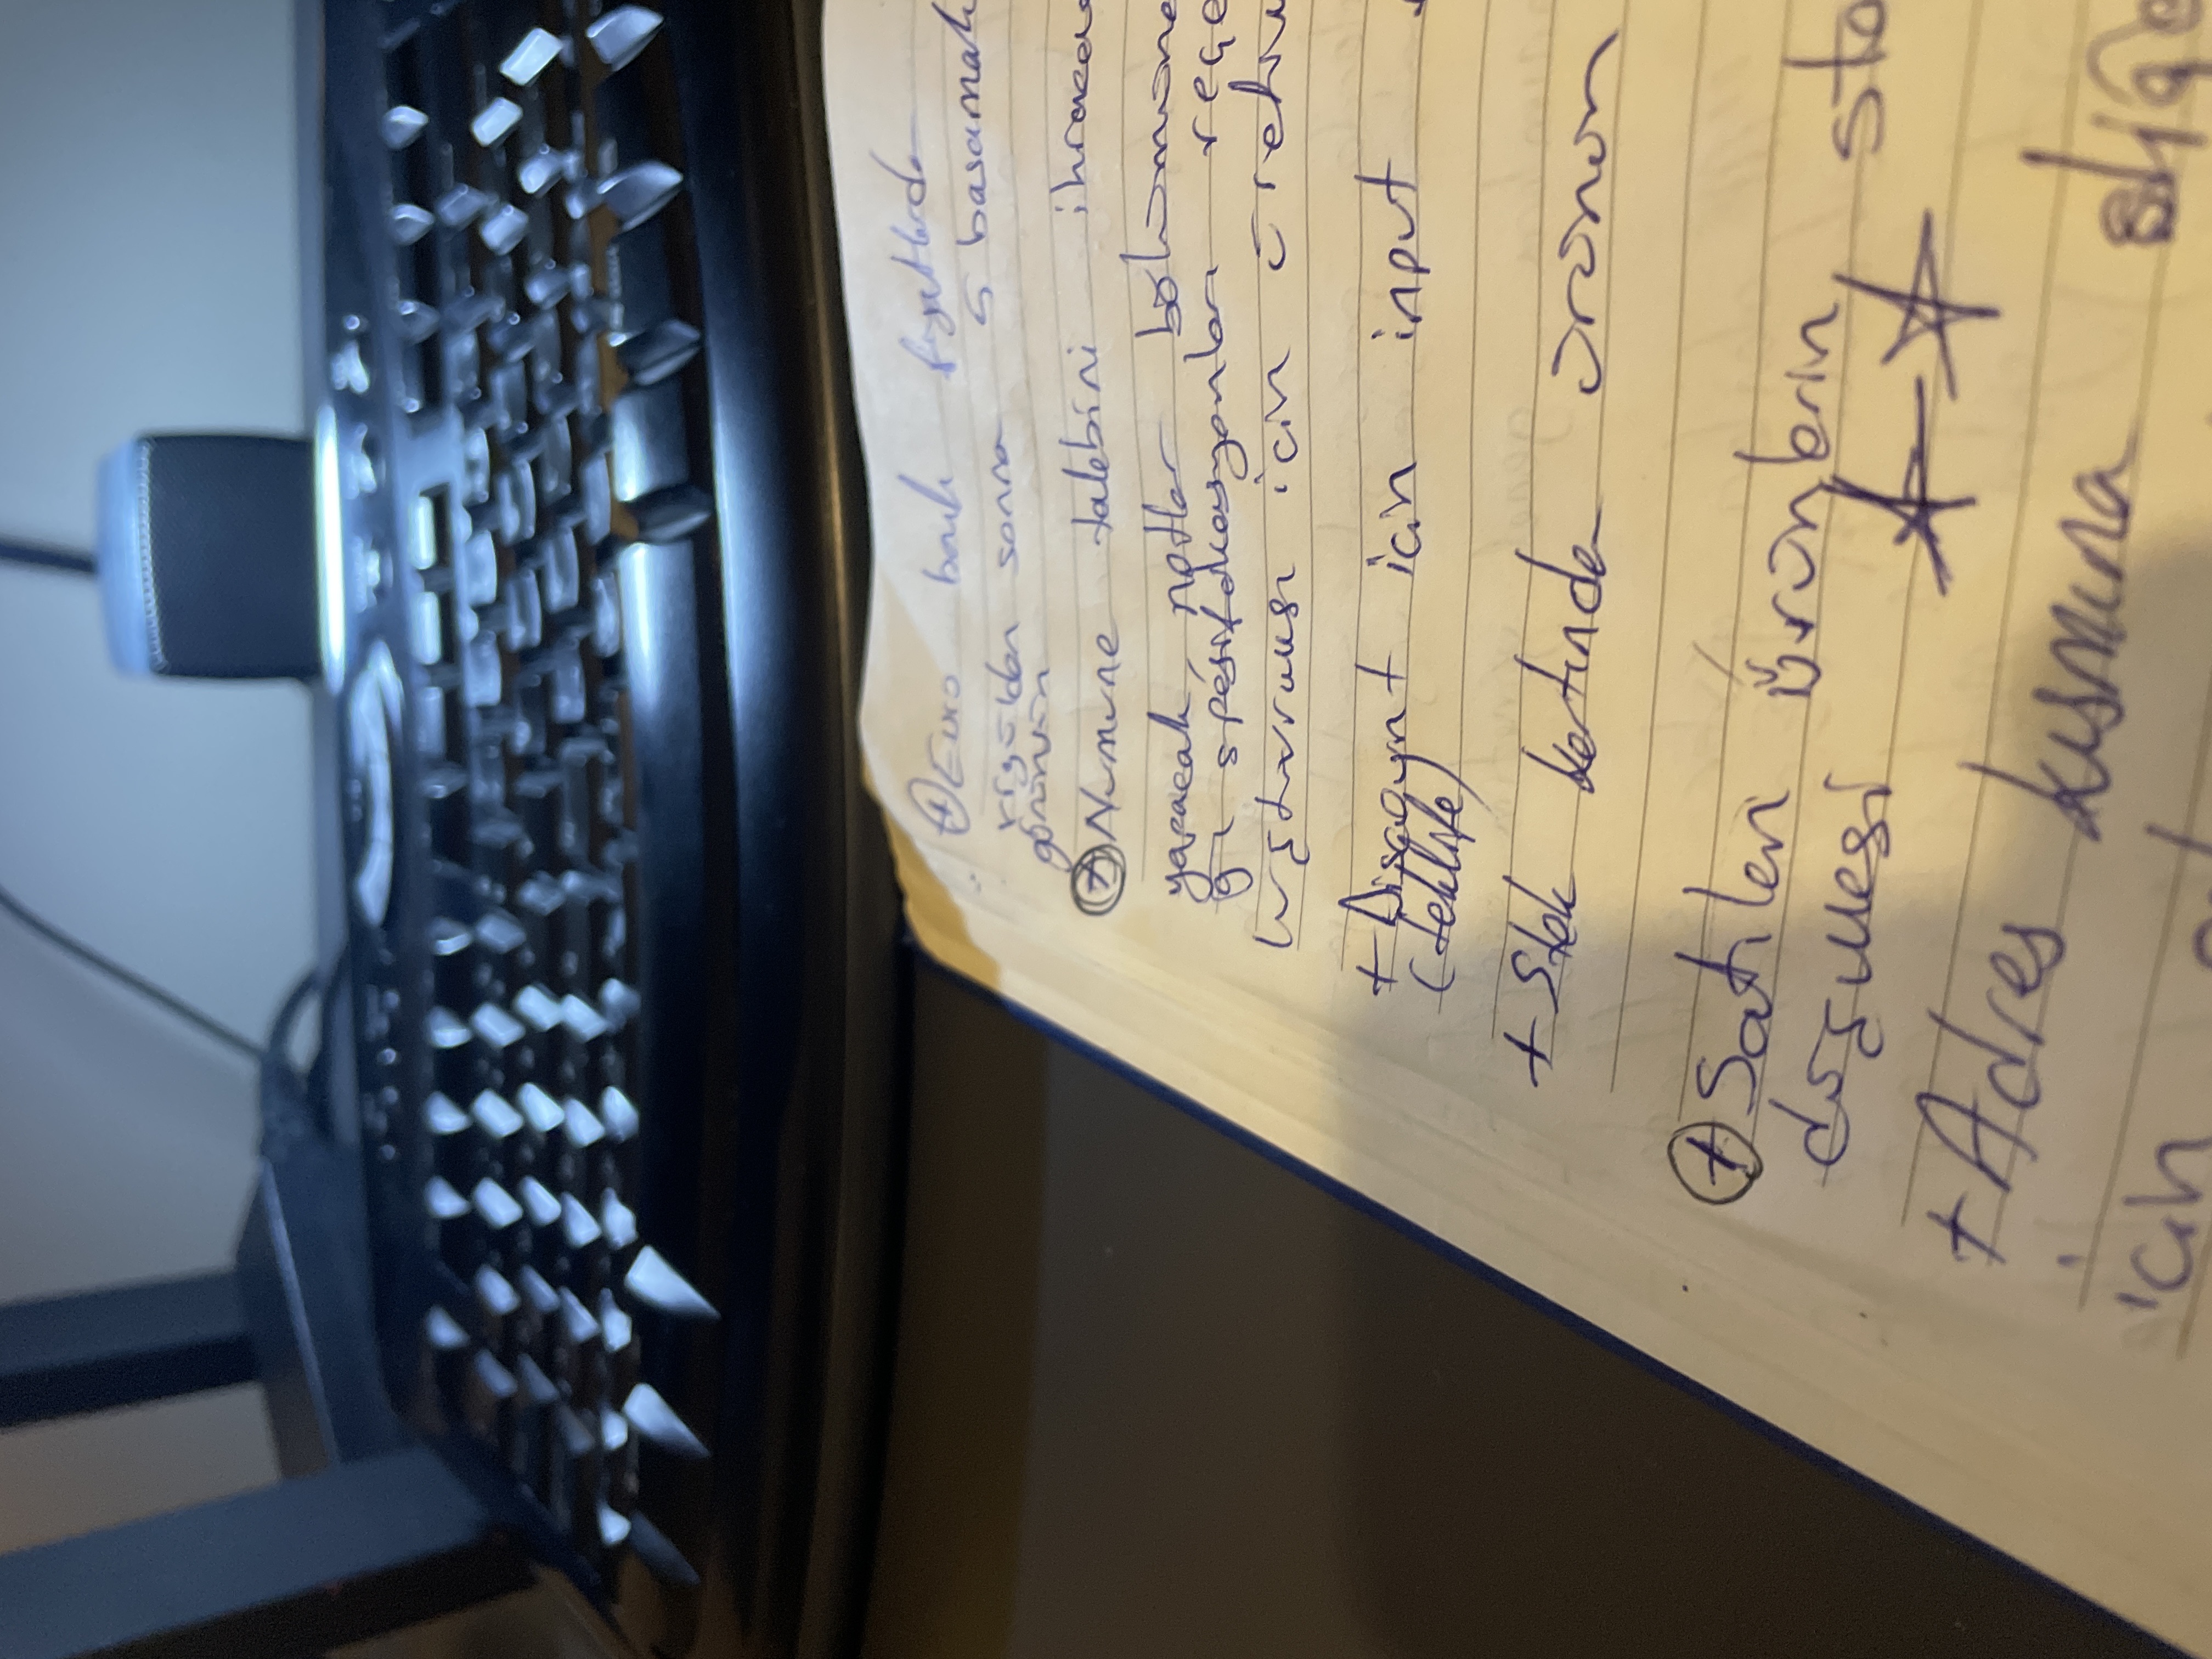 + Euro bank fiyatlarda
virgülden sonra 5 basamak
görünsün
+ Numune talebini ihracat
yapacak, notlar bölümüne
spesifikasyonları reçe
için üretim
+ Discount için input
(teklife)
+ Stok kartında ürünün
+ Satılan ürünlerin sto
düşmesi
+ Adres kısmına
için